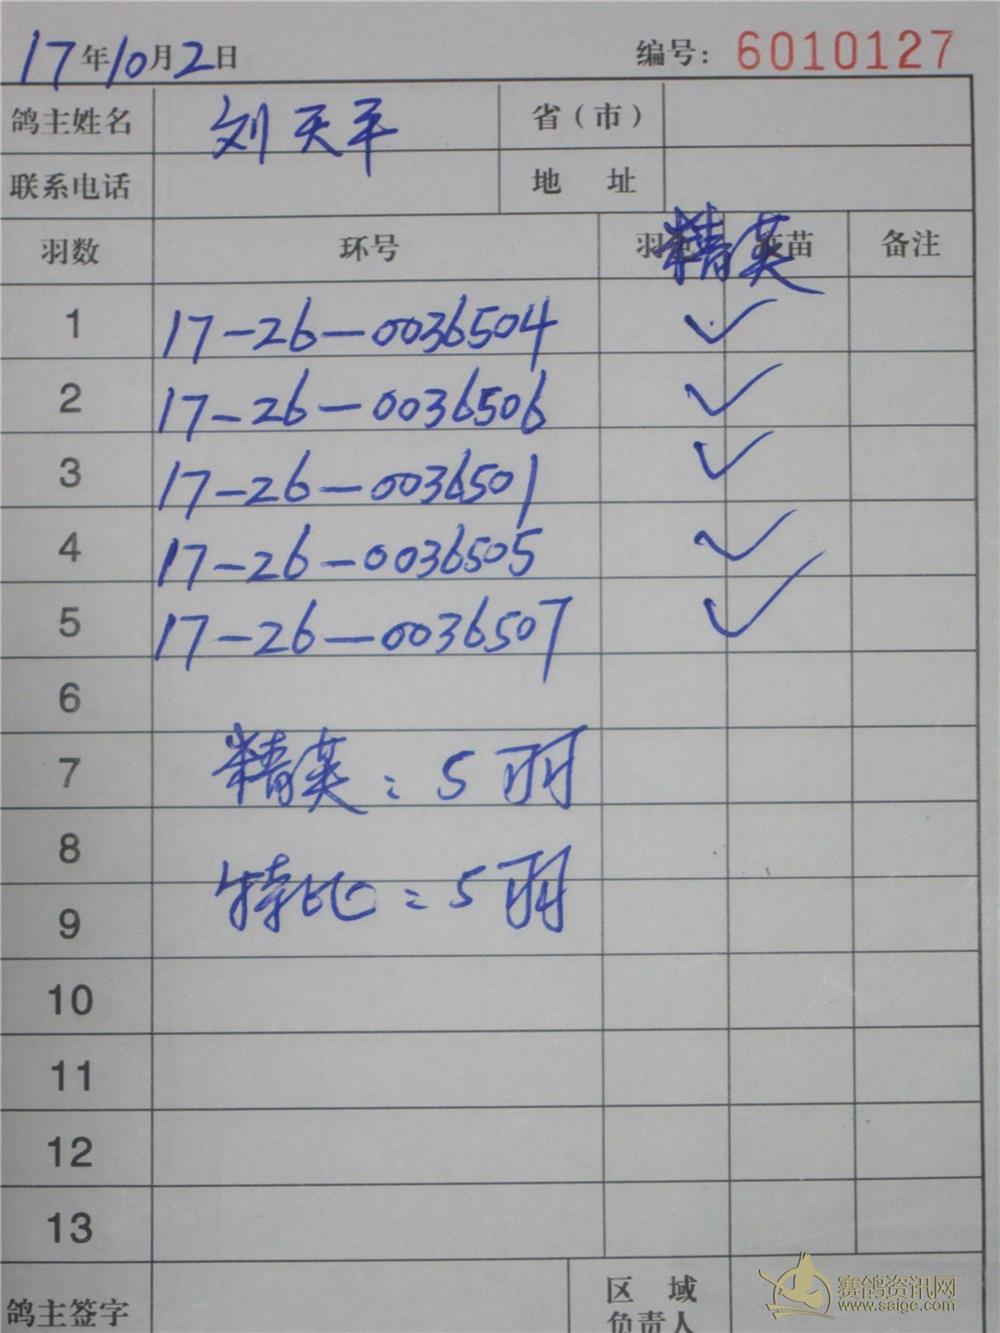 17年10月2日 编号：6010127
鸽主姓名 刘天平 省（市）
联系电话 地 址
羽数 环号 精英 苗 备注
1 17-26-0036504 ✓
2 17-26-0036506 ✓
3 17-26-0036501 ✓
4 17-26-0036505 ✓
5 17-26-0036507 ✓
6
7 精英：5羽
8
9 特比：5羽
10
11
12
13
鸽主签字 区 域
负责人
赛鸽资讯网
www.saigc.com